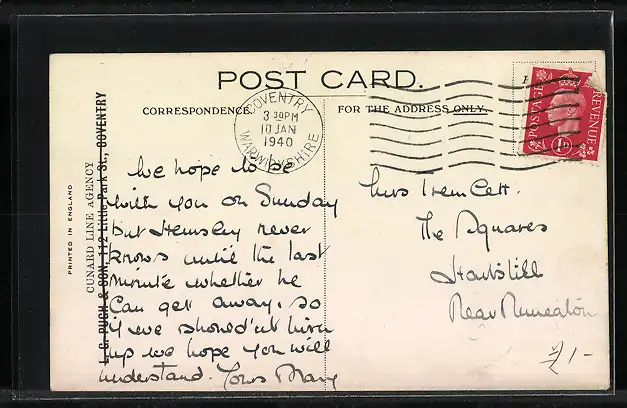 POST CARD.
CORRESPONDENCE.
FOR THE ADDRESS ONLY.
COVENTRY
3 30PM
10 JAN
1940
WARWICKSHIRE
POSTAGE
REVENUE
1D
PRINTED IN ENGLAND
CUNARD LINE AGENCY
L. G. PUGH & SON, 112 Little Park St., COVENTRY
We hope to be
with you on Sunday
but Hemsley never
knows until the last
minute whether he
can get away, so
if we should'nt turn
up we hope you will
understand. Yours Mary
Mrs
The Squares
Hartshill
Near Nuneaton
£1-